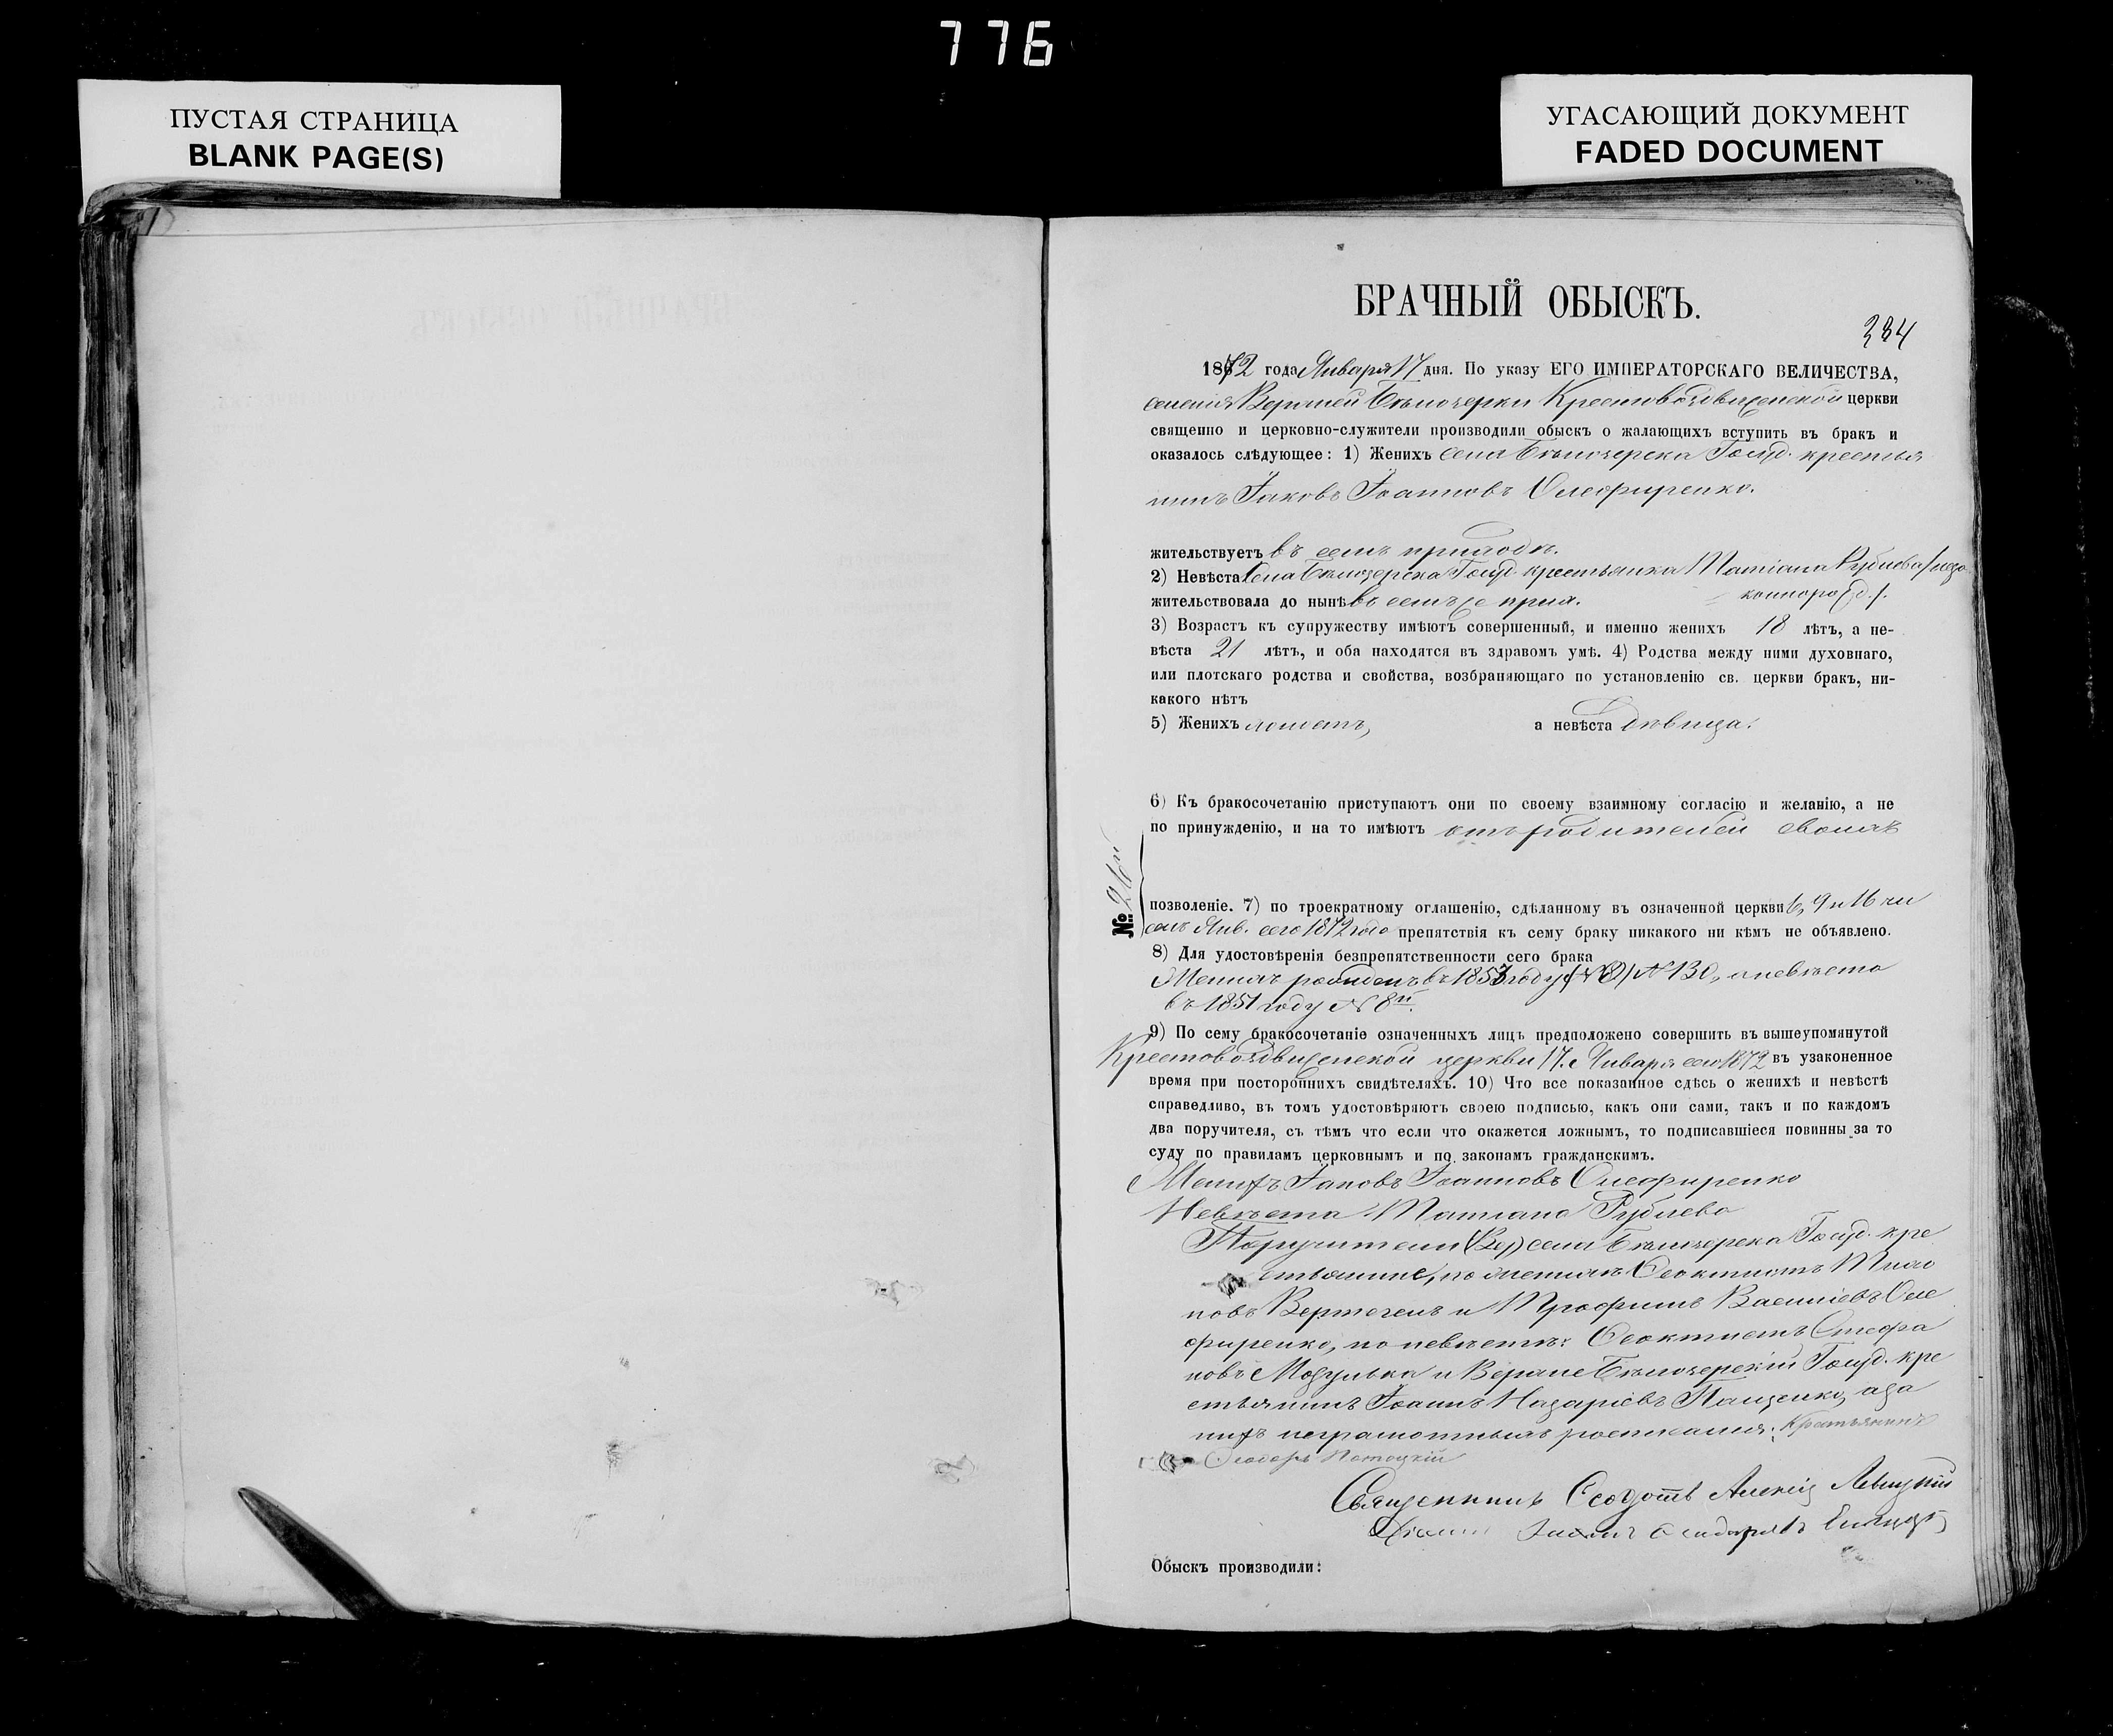 776
ПУСТАЯ СТРАНИЦА
BLANK PAGE(S)
УГАСАЮЩИЙ ДОКУМЕНТ
FADED DOCUMENT
БРАЧНЫЙ ОБЫСКЪ.
284
1872 года Января 17 дня. По указу ЕГО ИМПЕРАТОРСКАГО ВЕЛИЧЕСТВА,
селенія Верхней Бѣлозерки Крестовоздвиженской церкви
священно и церковно-служители производили обыскъ о жалающихъ вступить въ бракъ и
оказалось слѣдующее: 1) Женихъ села Бѣлозерска Госуд. крестья
нинъ Іаковъ Іоанновъ Олефиренко.
жительствуетъ въ семъ приходѣ.
2) Невѣста села Бѣлозерска Госуд. крестьянка Татіана Рублева
жительствовала до нынѣ въ семъ же прих.
3) Возрастъ къ супружеству имѣютъ совершенный, и именно женихъ 18 лѣтъ, а не-
вѣста 21 лѣтъ, и оба находятся въ здравомъ умѣ. 4) Родства между ними духовнаго,
или плотскаго родства и свойства, возбраняющаго по установленію св. церкви бракъ, ни-
какого нѣтъ
5) Женихъ холостъ, а невѣста дѣвица.
6) Къ бракосочетанію приступаютъ они по своему взаимному согласію и желанію, а не
по принужденію, и на то имѣютъ отъ родителей своихъ
№ 26й
позволеніе. 7) по троекратному оглашенію, сдѣланному въ означенной церкви 6, 9 и 16 чи
селъ Янв. сего 1872 года препятствія къ сему браку никакого ни кѣмъ не объявлено.
8) Для удостовѣренія безпрепятственности сего брака
Женихъ рожденъ въ 1853 году № 130, а невѣста
въ 1851 году № 8й.
9) По сему бракосочетаніе означенныхъ лицъ предположено совершить въ вышеупомянутой
Крестовоздвиженской церкви 17. Января сего 1872 въ узаконенное
время при постороннихъ свидѣтеляхъ. 10) Что все показанное сдѣсь о женихѣ и невѣстѣ
справедливо, въ томъ удостовѣряютъ своею подписью, какъ они сами, такъ и по каждомъ
два поручителя, съ тѣмъ что если что окажется ложнымъ, то подписавшіеся повинны за то
суду по правиламъ церковнымъ и по законамъ гражданскимъ.
Женихъ Іаковъ Іоанновъ Олефиренко
Невѣста Татіана Рублева
Поручители села Бѣлозерска Госуд. кре
стьянине, по женихѣ Феоктистъ Тихо
новъ и Трофимъ Василіевъ Оле
фиренко, по невѣстѣ: Феоктистъ Стефа
новъ и Верхне Бѣлозерскій Госуд. кре
стьянинъ Іоаннъ Назаріевъ Пащенко, а за
нихъ неграмотныхъ росписался: Крестьянинъ
Феодоръ
Священникъ Феодотъ Алексій Левицкій
Обыскъ производили: